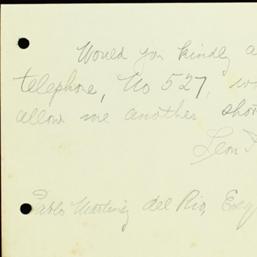 Would you kindly a
telephone, No 527, w
allow me another sho
Leon
Pablo Martinez del Rio, Esq